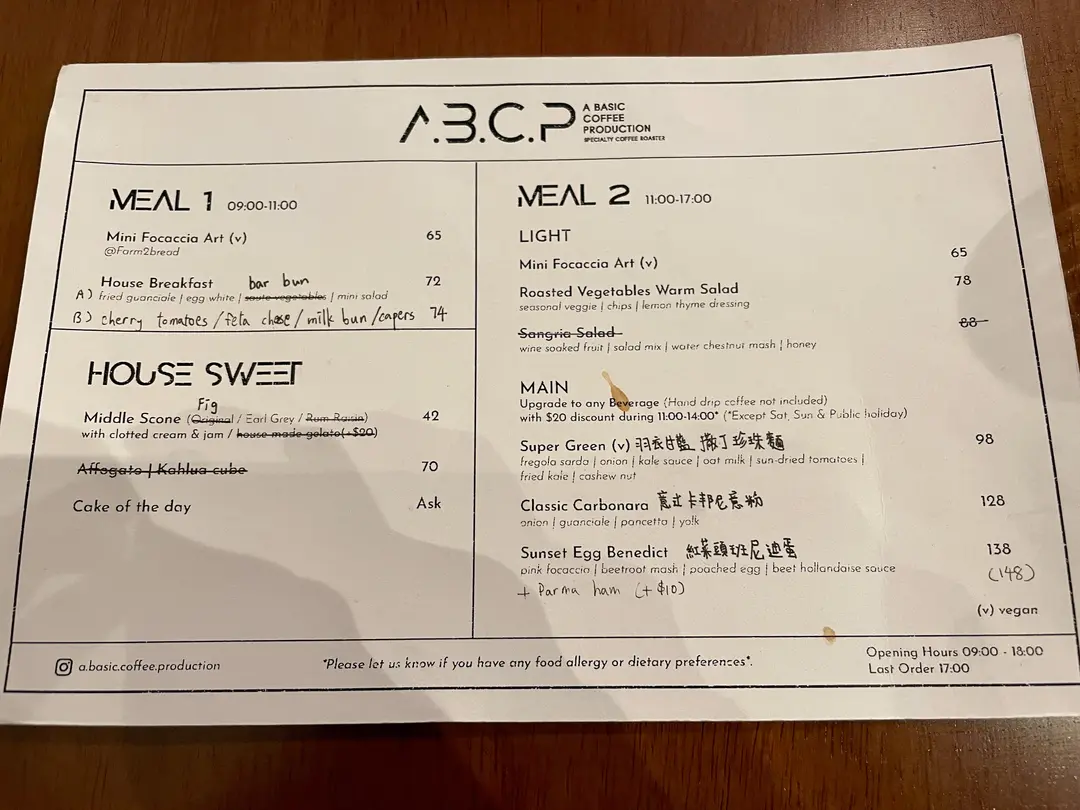 A.B.C.P
A BASIC
COFFEE
PRODUCTION
SPECIALTY COFFEE ROASTER
MEAL 1 09:00-11:00
Mini Focaccia Art (v) 65
@Farm2bread
House Breakfast bar bun 72
A) fried guanciale | egg white | saute vegetables | mini salad
B) cherry tomatoes / feta chese / milk bun / capers 74
HOUSE SWEET
Fig
Middle Scone (Original / Earl Grey / Rum Raisin) 42
with clotted cream & jam / house made gelato(+$20)
Affogato | Kahlua cube 70
Cake of the day Ask
MEAL 2 11:00-17:00
LIGHT
Mini Focaccia Art (v) 65
Roasted Vegetables Warm Salad 78
seasonal veggie | chips | lemon thyme dressing
Sangria Salad 88
wine soaked fruit | salad mix | water chestnut mash | honey
MAIN
Upgrade to any Beverage (Hand drip coffee not included)
with $20 discount during 11:00-14:00* (*Except Sat, Sun & Public holiday)
Super Green (v) 羽衣甘藍 撒丁珍珠麵 98
fregola sarda | onion | kale sauce | oat milk | sun-dried tomatoes |
fried kale | cashew nut
Classic Carbonara 意式卡邦尼意粉 128
onion | guanciale | pancetta | yolk
Sunset Egg Benedict 紅菜頭班尼迪蛋 138
pink focaccia | beetroot mash | poached egg | beet hollandaise sauce (148)
+ Parma ham (+ $10)
(v) vegan
a.basic.coffee.production
*Please let us know if you have any food allergy or dietary preferences*.
Opening Hours 09:00 - 18:00
Last Order 17:00